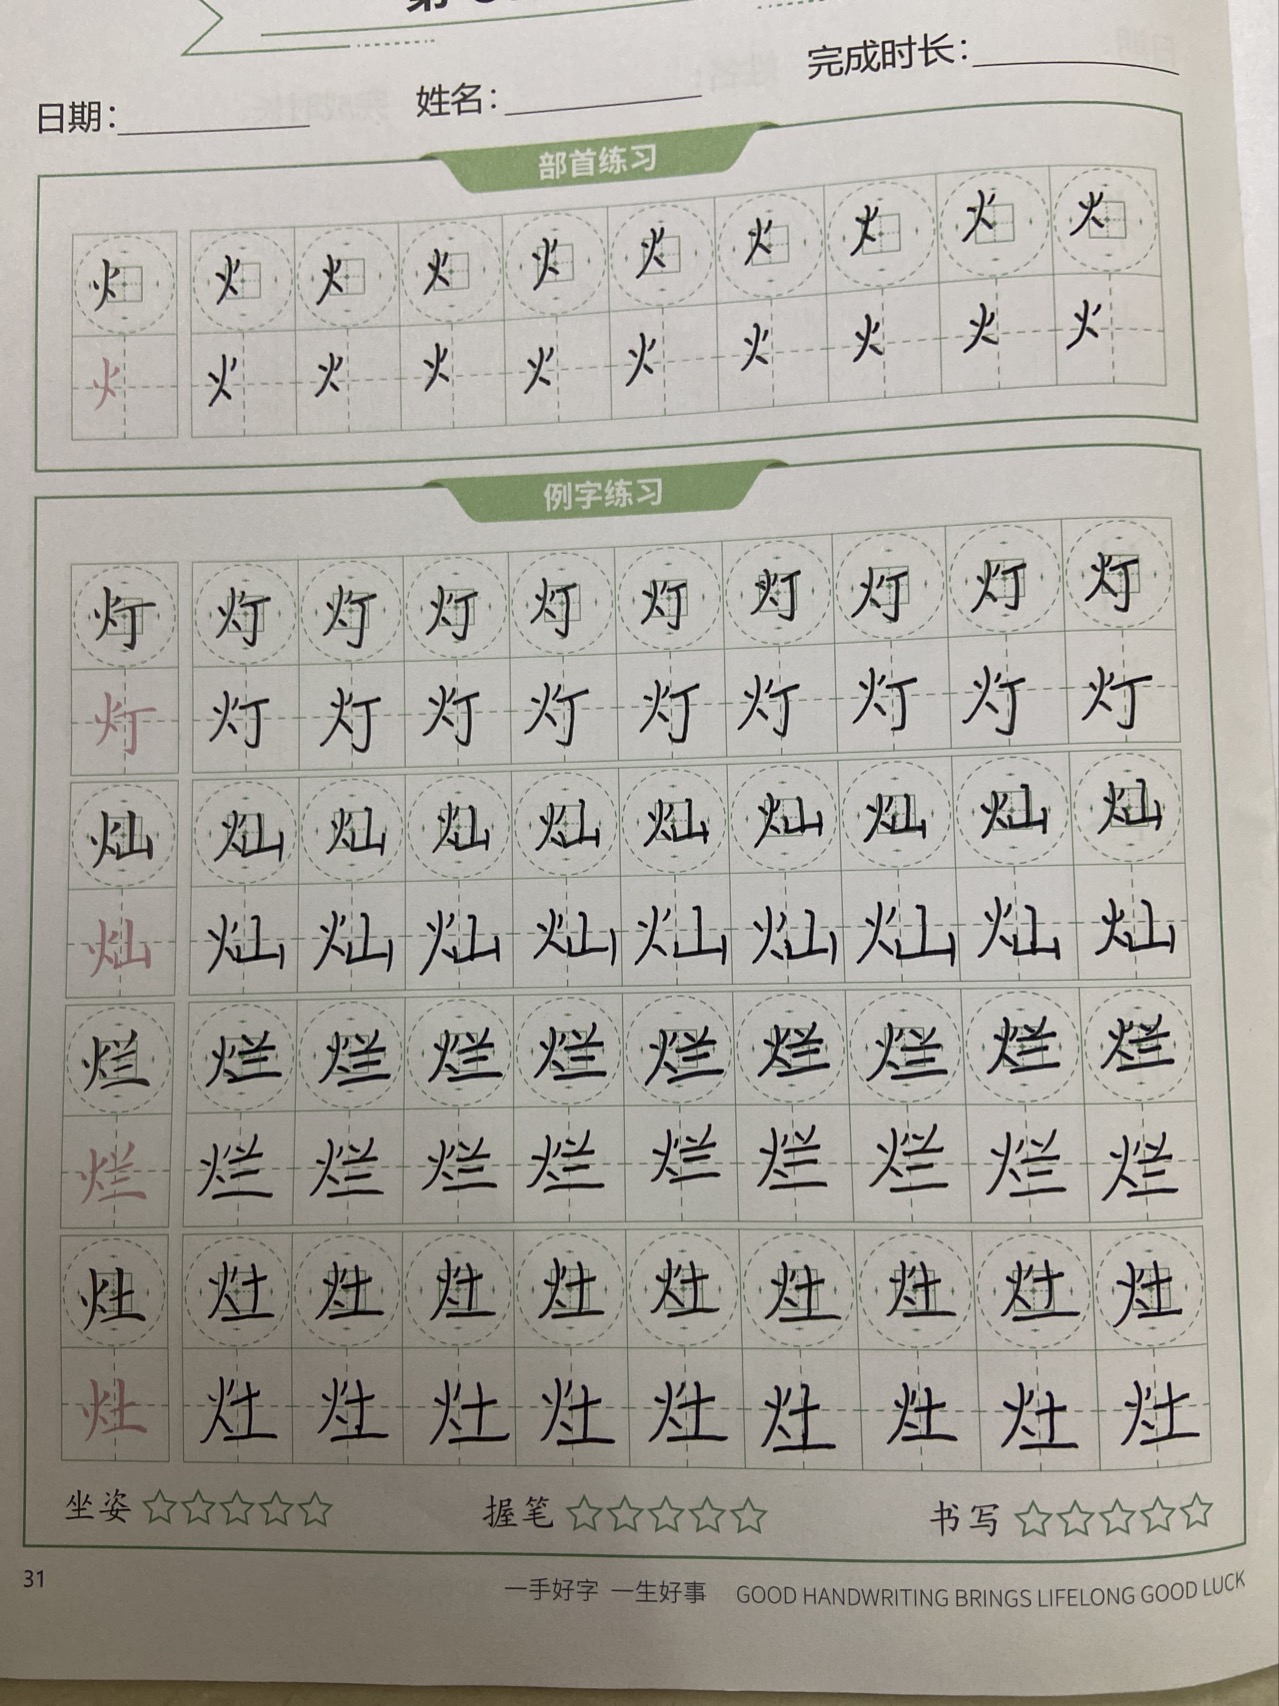 第
日期：
姓名：
完成时长：
部首练习
火 火 火 火 火 火 火 火 火 火
火 火 火 火 火 火 火 火 火 火
例字练习
灯 灯 灯 灯 灯 灯 灯 灯 灯 灯
灯 灯 灯 灯 灯 灯 灯 灯 灯 灯
灿 灿 灿 灿 灿 灿 灿 灿 灿 灿
灿 灿 灿 灿 灿 灿 灿 灿 灿 灿
烂 烂 烂 烂 烂 烂 烂 烂 烂 烂
烂 烂 烂 烂 烂 烂 烂 烂 烂 烂
灶 灶 灶 灶 灶 灶 灶 灶 灶 灶
灶 灶 灶 灶 灶 灶 灶 灶 灶 灶
坐姿 ☆☆☆☆☆ 握笔 ☆☆☆☆☆ 书写 ☆☆☆☆☆
31
一手好字 一生好事 GOOD HANDWRITING BRINGS LIFELONG GOOD LUCK